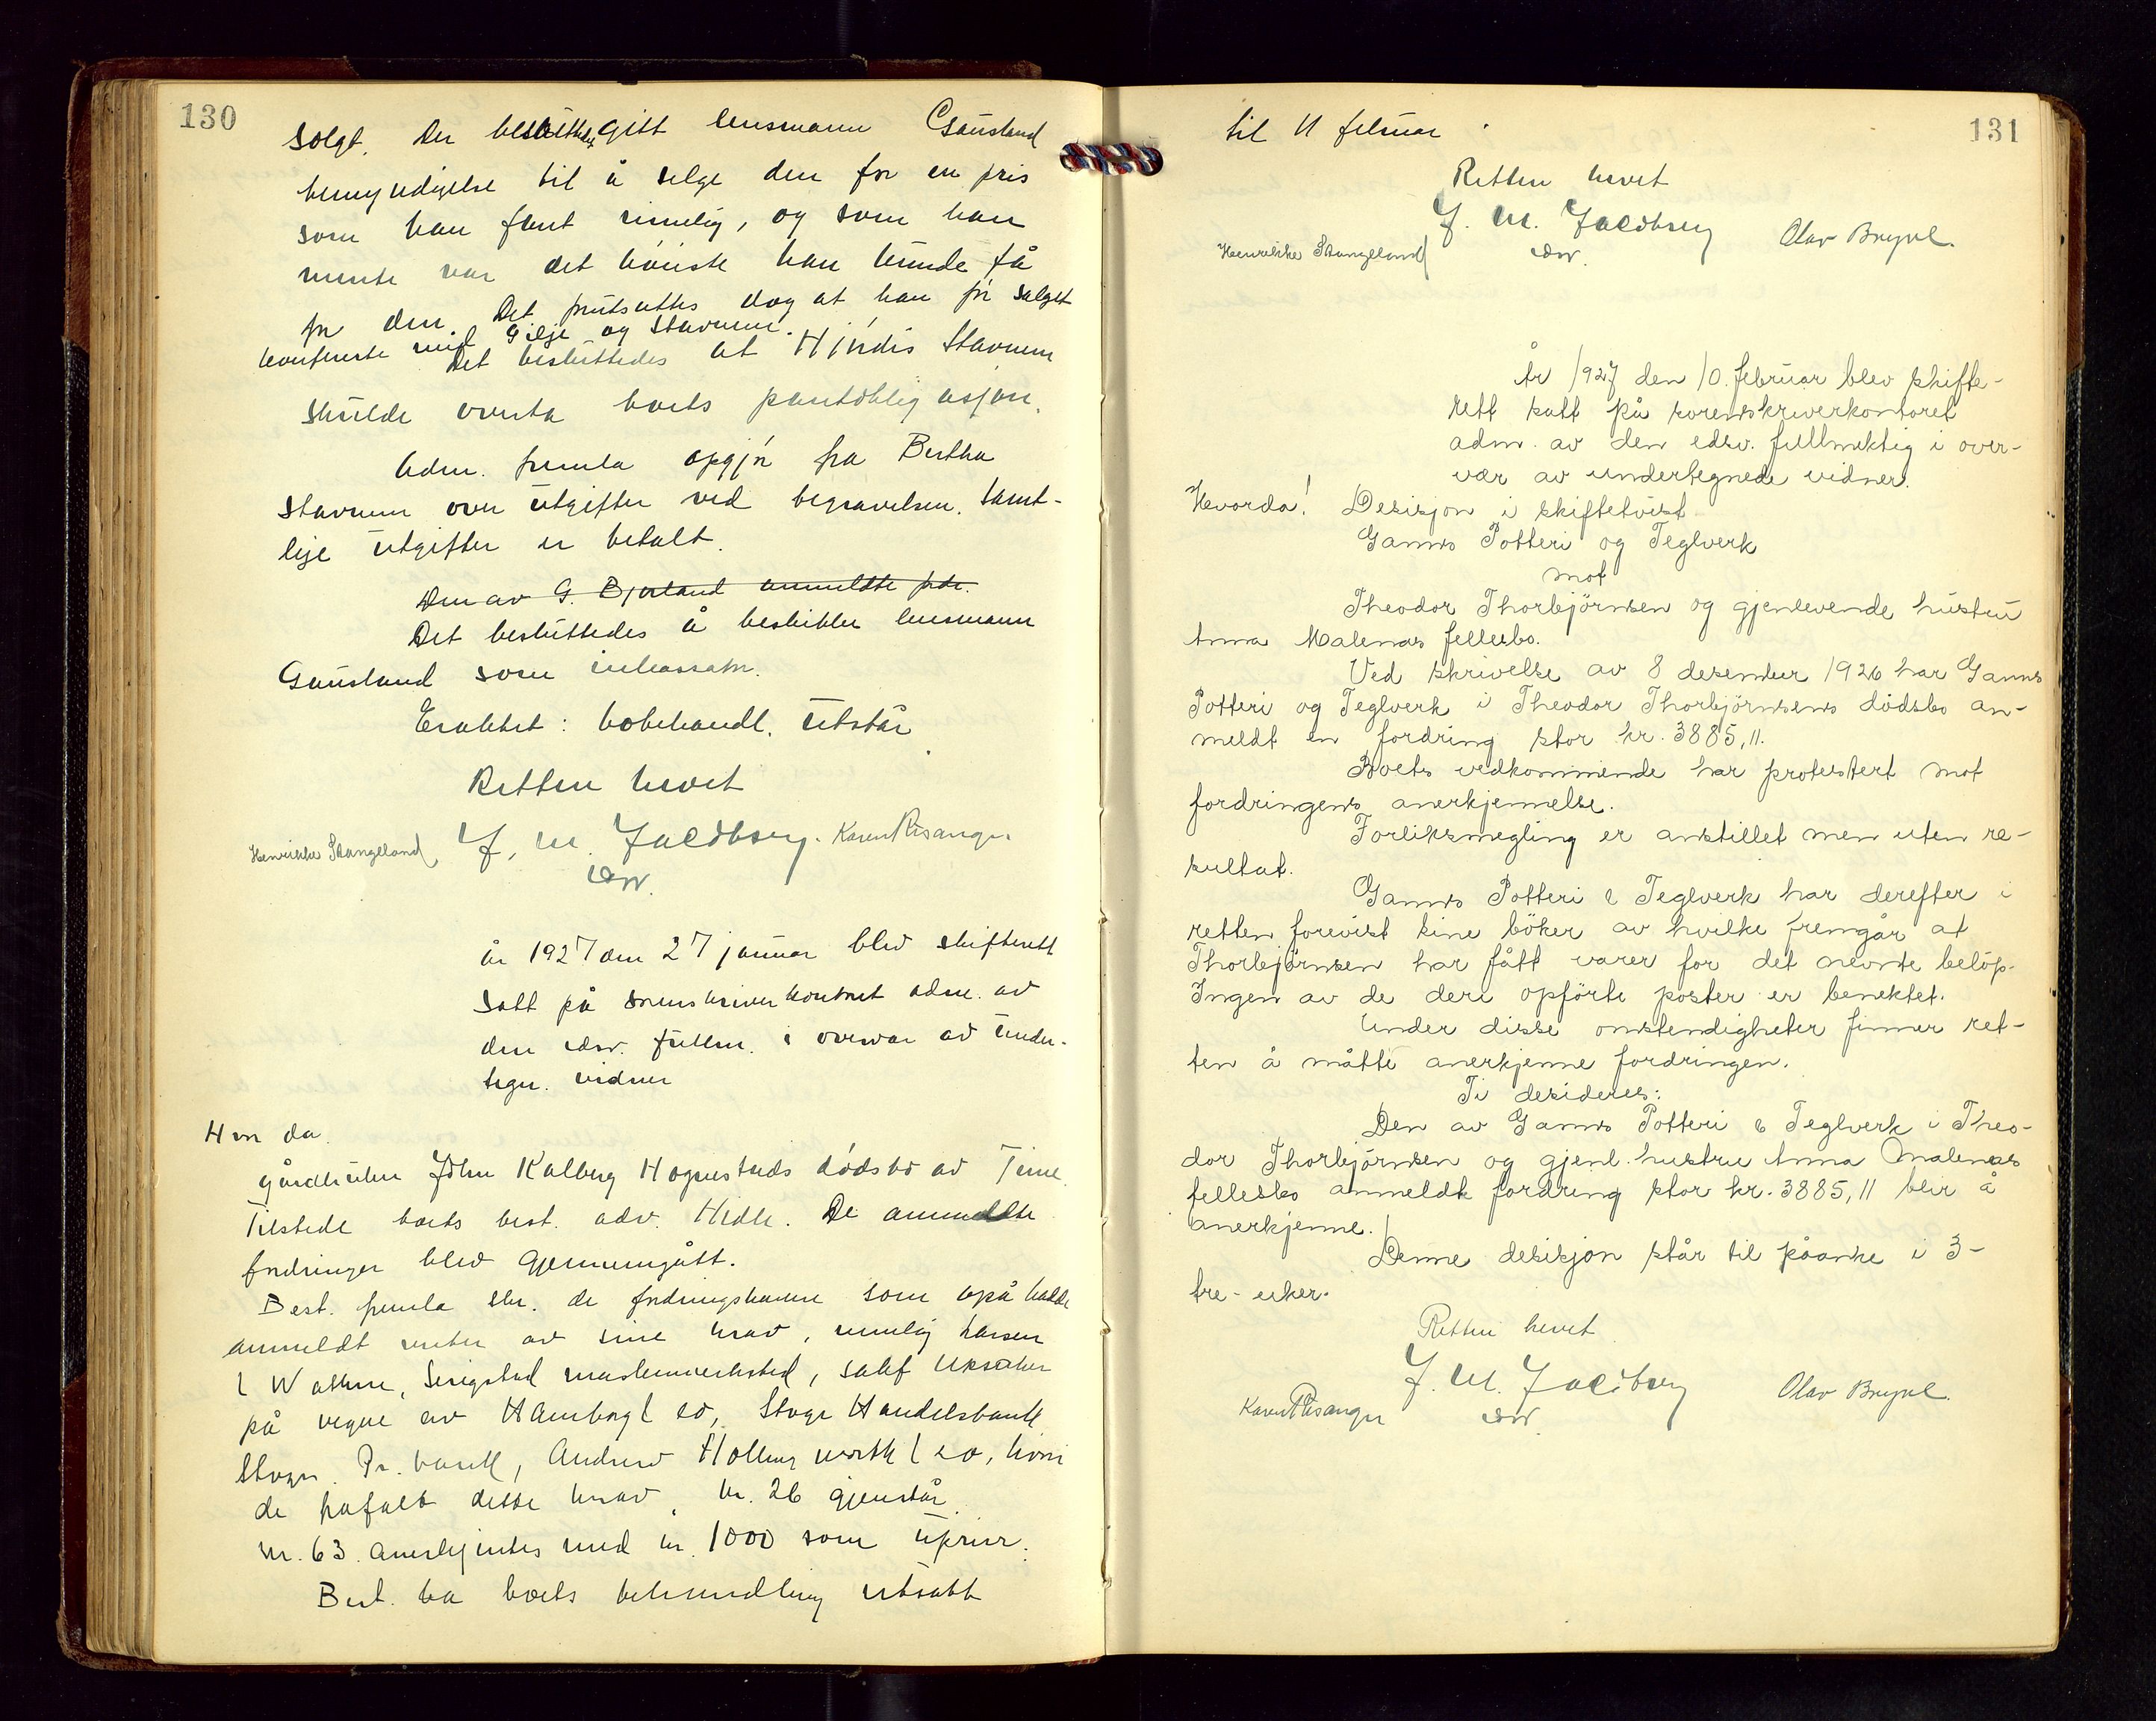 130
solgt. Der besluttedes gitt lensmann Gausland
bemyndigelse til å selge den for en pris
som han fant rimelig, og som han
mente var det høieste han kunde få
for den. Det forutsattes dog at han før salget
konfererte med Gilje og Stavnem.
Det besluttedes at Hjørdis Stavnem
skulde overta boets pantobligasjon.
Adm. fremla opgjør fra Bertha
Stavnem over utgifter ved begravelsen. Samt-
lige utgifter er betalt.
Den av G. Bjorland anmeldte fordr.
Det besluttedes å beskikke lensmann
Gausland som inkassator.
Eraktet: bobehandl. utstår
Retten hevet
Henrikke Stangeland J. M. Jacobsen. Karen Risanger
edsv.
År 1927 den 27 januar blev skifterett
satt på sorenskriverkontoret adm. av
den edsv. fullm. i overvær av under-
tegn. vidner
Hvor da.
gårdbruker John Kalberg Hognestads dødsbo av Time.
Tilstede boets best. adv. Hidle. De anmeldte
fordringer blev gjennemgått.
Best. fremla skr. de fordringshavere som også hadde
anmeldt renter av sine krav, nemlig Larsen
& Wathne, Serigstad maskinverksted, sakf.
på vegne av Hamborg & co, Stvgr Handelsbank
Stvgr. Pr. bank, Andrew Hollingworth & co, hvori
de frafalt dette krav. Nr. 26 gjenstår.
Nr. 63. anerkjentes med kr. 1000 som uprior.
Best. ba boets behandling utsatt
131
til 11 februar
Retten hevet
J. M. Jacobsen Olav Bryne.
Henrikke Stangeland edsv.
År 1927 den 10. februar blev skifte-
rett satt på sorenskriverkontoret
adm. av den edsv. fullmektig i over-
vær av undertegnede vidner.
Hvorda! Desisjon i skiftetvist
Ganns Potteri og Teglverk
mot
Theodor Thorbjörnsen og gjenlevende hustru
Anna Malenas fellesbo.
Ved skrivelse av 8 desember 1926 har Ganns
Potteri og Teglverk i Theodor Thorbjörnsens dödsbo an-
meldt en fordring stor kr. 3885,11.
Boets vedkommende har protestert mot
fordringens anerkjennelse.
Forliksmegling er anstillet men uten re-
sultat.
Ganns Potteri & Teglverk har derefter i
retten forevist sine böker av hvilke fremgår at
Thorbjörnsen har fått varer for det nevnte belöp.
Ingen av de deri opförte poster er benektet.
Under disse omstendigheter finner ret-
ten å måtte anerkjenne fordringen.
Ti desideres:
Den av Ganns Potteri & Teglverk i Theo-
dor Thorbjörnsen og gjenl. hustru Anna Malenas
fellesbo anmeldte fordring stor kr. 3885,11 blir å
anerkjenne.
Denne desisjon står til påanke i 3-
tre- uker.
Retten hevet
J. M. Jacobsen Olav Bryne.
Karen Risanger edsv.